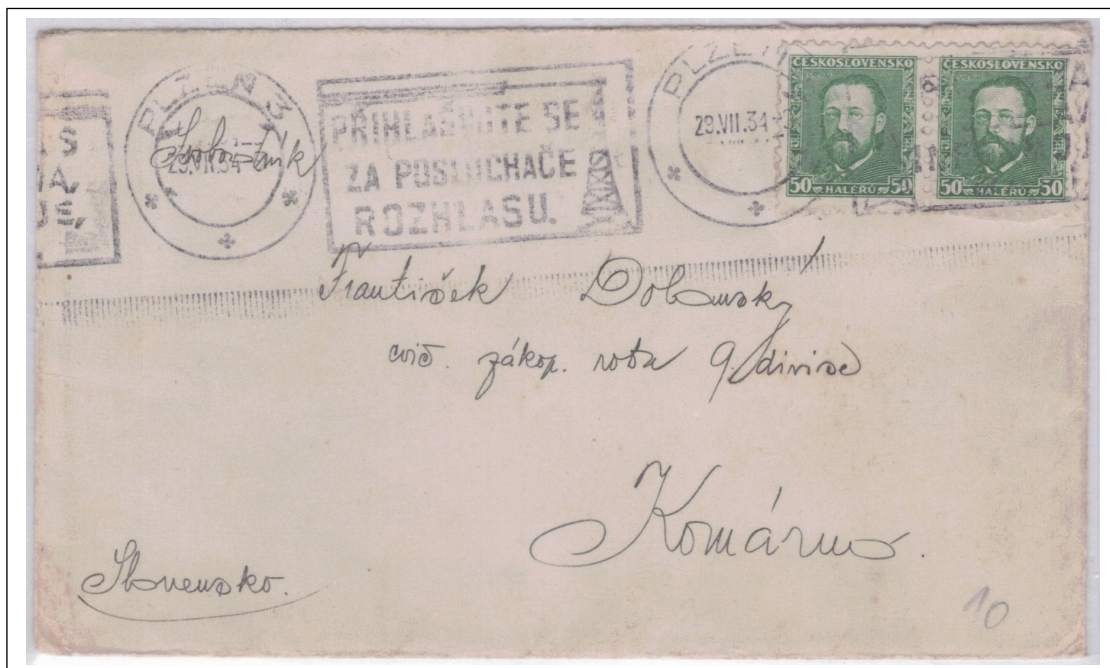 PLZEŇ 3
29.VII.34
PŘIHLASUJTE SE
ZA POSLUCHAČE
ROZHLASU.
PLZEŇ
29.VII.34
ČESKOSLOVENSKO
50 HALÉŘŮ 50
ČESKOSLOVENSKO
50 HALÉŘŮ 50
František Dobanský
cvič. zákop. rota 9. divise
Komárno.
Slovensko.
10